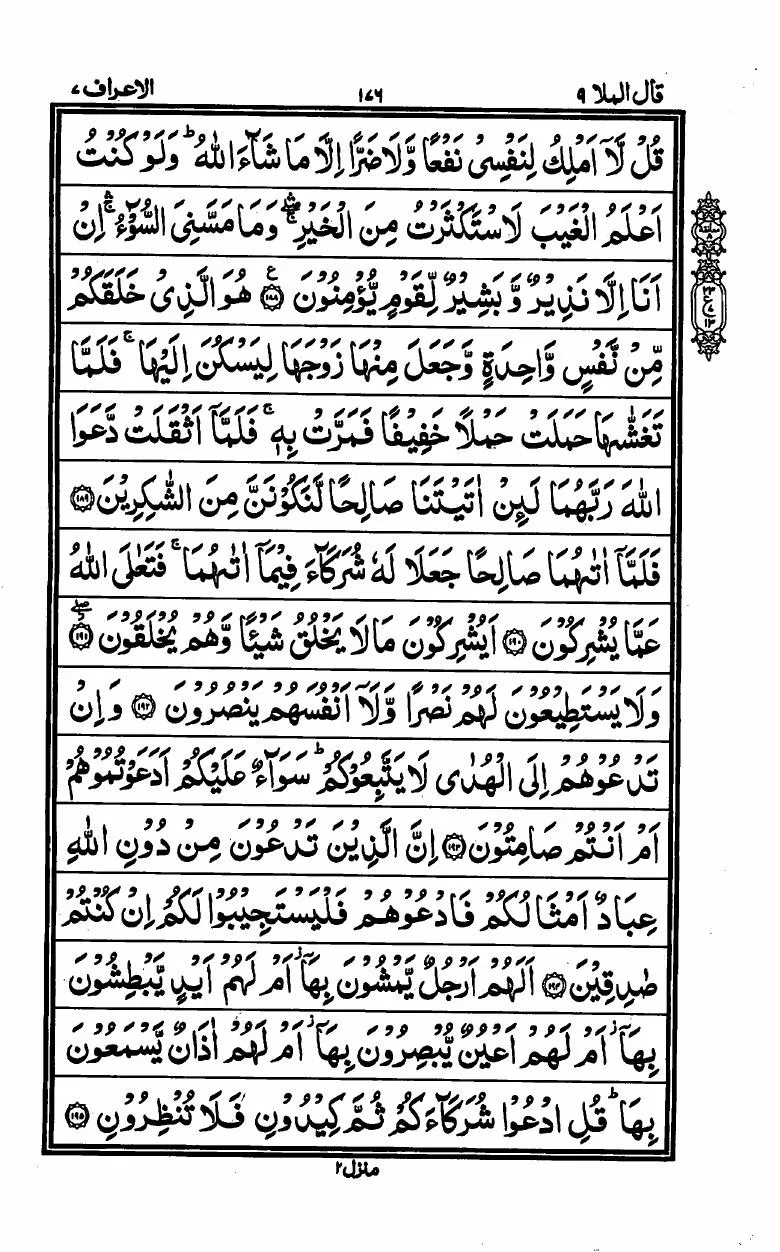 قال الملا ٩
١٧٦
الاعراف ٧
قُلْ لَّاۤ اَمْلِكُ لِنَفْسِیْ نَفْعًا وَّلَا ضَرًّا اِلَّا مَا شَآءَ اللّٰهُ ؕ وَلَوْ كُنْتُ
اَعْلَمُ الْغَیْبَ لَاسْتَكْثَرْتُ مِنَ الْخَیْرِ ۛۚ وَمَا مَسَّنِیَ السُّوْٓءُ ۛۚ اِنْ
اَنَا اِلَّا نَذِیْرٌ وَّ بَشِیْرٌ لِّقَوْمٍ یُّؤْمِنُوْنَ ﴿١٨٨﴾ ع هُوَ الَّذِیْ خَلَقَكُمْ
مِّنْ نَّفْسٍ وَّاحِدَةٍ وَّجَعَلَ مِنْهَا زَوْجَهَا لِیَسْكُنَ اِلَیْهَا ۚ فَلَمَّا
تَغَشّٰىهَا حَمَلَتْ حَمْلًا خَفِیْفًا فَمَرَّتْ بِهٖ ۚ فَلَمَّاۤ اَثْقَلَتْ دَّعَوَا
اللّٰهَ رَبَّهُمَا لَىِٕنْ اٰتَیْتَنَا صَالِحًا لَّنَكُوْنَنَّ مِنَ الشّٰكِرِیْنَ ﴿١٨٩﴾
فَلَمَّاۤ اٰتٰىهُمَا صَالِحًا جَعَلَا لَهٗ شُرَكَآءَ فِیْمَاۤ اٰتٰىهُمَا ۚ فَتَعٰلَى اللّٰهُ
عَمَّا یُشْرِكُوْنَ ﴿١٩٠﴾ اَیُشْرِكُوْنَ مَا لَا یَخْلُقُ شَیْـًٔا وَّهُمْ یُخْلَقُوْنَ ﴿١٩١﴾ۖ
وَلَا یَسْتَطِیْعُوْنَ لَهُمْ نَصْرًا وَّلَاۤ اَنْفُسَهُمْ یَنْصُرُوْنَ ﴿١٩٢﴾ وَاِنْ
تَدْعُوْهُمْ اِلَى الْهُدٰى لَا یَتَّبِعُوْكُمْ ؕ سَوَآءٌ عَلَیْكُمْ اَدَعَوْتُمُوْهُمْ
اَمْ اَنْتُمْ صَامِتُوْنَ ﴿١٩٣﴾ اِنَّ الَّذِیْنَ تَدْعُوْنَ مِنْ دُوْنِ اللّٰهِ
عِبَادٌ اَمْثَالُكُمْ فَادْعُوْهُمْ فَلْیَسْتَجِیْبُوْا لَكُمْ اِنْ كُنْتُمْ
صٰدِقِیْنَ ﴿١٩٤﴾ اَلَهُمْ اَرْجُلٌ یَّمْشُوْنَ بِهَاۤ ؗ اَمْ لَهُمْ اَیْدٍ یَّبْطِشُوْنَ
بِهَاۤ ؗ اَمْ لَهُمْ اَعْیُنٌ یُّبْصِرُوْنَ بِهَاۤ ؗ اَمْ لَهُمْ اٰذَانٌ یَّسْمَعُوْنَ
بِهَا ؕ قُلِ ادْعُوْا شُرَكَآءَكُمْ ثُمَّ كِیْدُوْنِ فَلَا تُنْظِرُوْنِ ﴿١٩٥﴾
منزل ٢